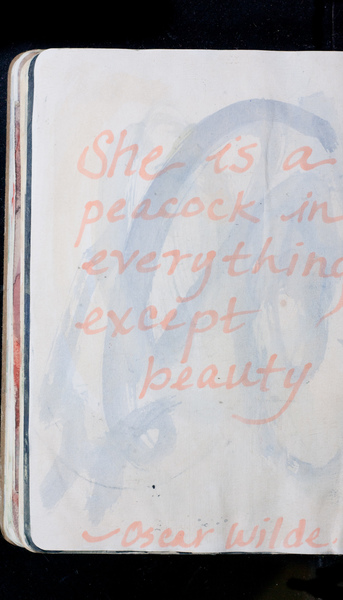 She is a
peacock in
everything
except
beauty
~Oscar Wilde.